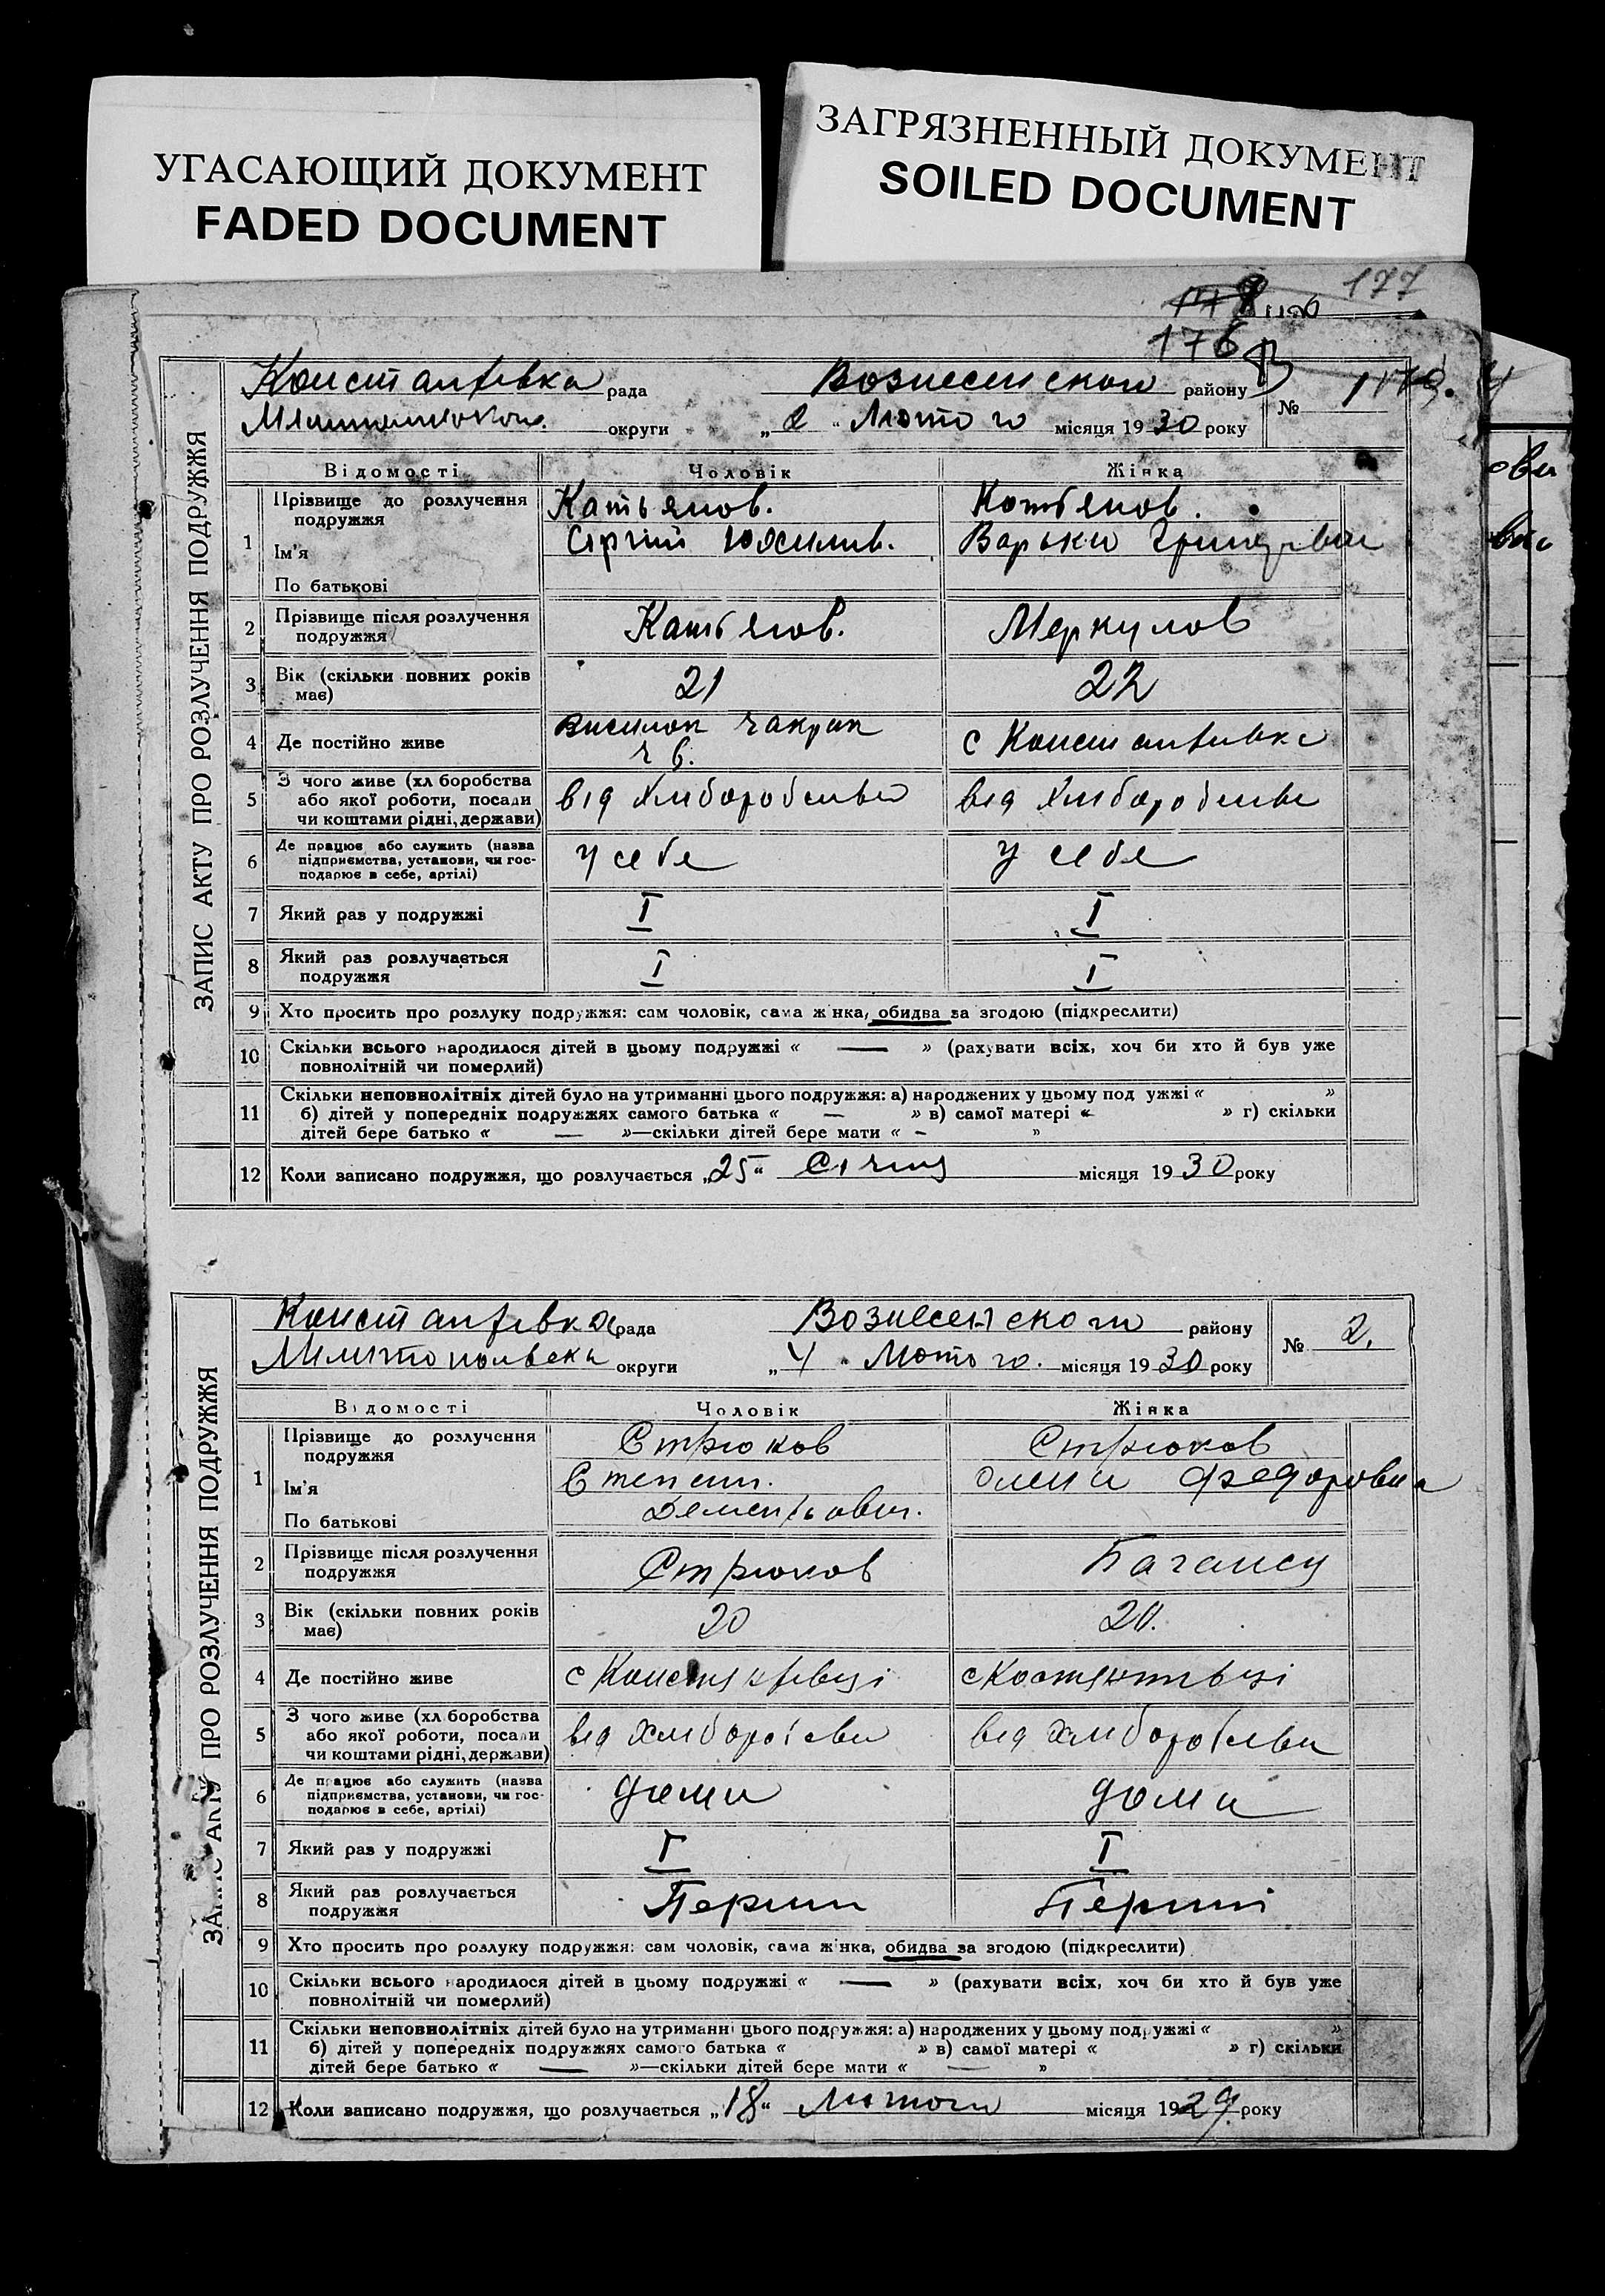 УГАСАЮЩИЙ ДОКУМЕНТ
FADED DOCUMENT
ЗАГРЯЗНЕННЫЙ ДОКУМЕНТ
SOILED DOCUMENT
177
176
ЗАПИС АКТУ ПРО РОЗЛУЧЕННЯ ПОДРУЖЖЯ
Константівка рада Вознесенског району
округи „2“ Лютого місяця 1930 року №
Відомості Чоловік Жінка
1 Прізвище до розлучення подружжя Катьянов. Катьянов.
Ім'я Сергій Варька
По батькові
2 Прізвище після розлучення подружжя Катьянов. Меркулов
3 Вік (скільки повних років має) 21 22
4 Де постійно живе с Константивка
5 З чого живе (хліборобства або якої роботи, посади чи коштами рідні, держави) від Хлиборобства від Хлиборобства
6 Де працює або служить (назва підприємства, установи, чи господарює в себе, артілі) у себе у себе
7 Який раз у подружжі I I
8 Який раз розлучається подружжя I I
9 Хто просить про розлуку подружжя: сам чоловік, сама жінка, обидва за згодою (підкреслити)
10 Скільки всього народилося дітей в цьому подружжі « — » (рахувати всіх, хоч би хто й був уже
повнолітній чи померлий)
11 Скільки неповнолітніх дітей було на утриманні цього подружжя: а) народжених у цьому подружжі « »
б) дітей у попередніх подружжях самого батька « — » в) самої матері « – » г) скільки
дітей бере батько « — »—скільки дітей бере мати « – »
12 Коли записано подружжя, що розлучається „25“ Січня місяця 1930 року
ЗАПИС АКТУ ПРО РОЗЛУЧЕННЯ ПОДРУЖЖЯ
Константівка рада Вознесенског району
Мелитопольска округи „4“ Лютого. місяця 1930 року № 2.
Відомості Чоловік Жінка
1 Прізвище до розлучення подружжя Стрюков Стрюков
Ім'я Степан. Олена Федоровна
По батькові Дементьович.
2 Прізвище після розлучення подружжя Стрюков
3 Вік (скільки повних років має) 20 20.
4 Де постійно живе с Констянтівці с Костянтивці
5 З чого живе (хліборобства або якої роботи, посади чи коштами рідні, держави) від Хлиборобства від Хлиборобства
6 Де працює або служить (назва підприємства, установи, чи господарює в себе, артілі) дома дома
7 Який раз у подружжі I I
8 Який раз розлучається подружжя Перши Перший
9 Хто просить про розлуку подружжя: сам чоловік, сама жінка, обидва за згодою (підкреслити)
10 Скільки всього народилося дітей в цьому подружжі « — » (рахувати всіх, хоч би хто й був уже
повнолітній чи померлий)
11 Скільки неповнолітніх дітей було на утриманні цього подружжя: а) народжених у цьому подружжі « »
б) дітей у попередніх подружжях самого батька « » в) самої матері « » г) скільки
дітей бере батько « — »—скільки дітей бере мати « — »
12 Коли записано подружжя, що розлучається „18“ Лютого місяця 1929 року